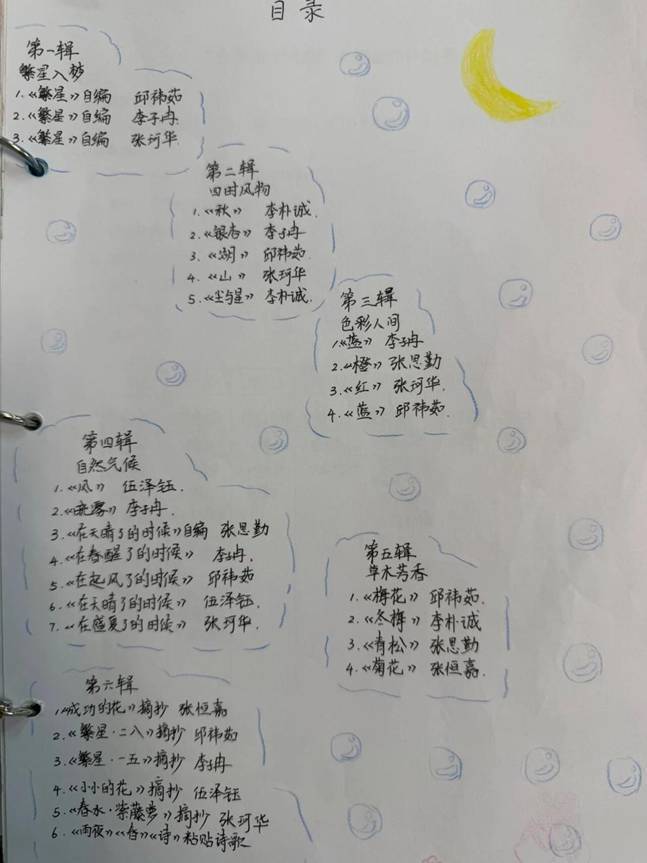 目录
第一辑
繁星入梦
1.《繁星》自编 邱祎茹
2.《繁星》自编 李子冉
3.《繁星》自编 张珂华
第二辑
四时风物
1.《秋》 李朴诚.
2.《银杏》 李子冉
3.《湖》 邱祎茹.
4.《山》 张珂华
5.《尘与星》 李朴诚.
第三辑
色彩人间
1.《蓝》 李子冉
2.《橙》 张思勤
3.《红》 张珂华.
4.《蓝》 邱祎茹.
第四辑
自然气候
1.《风》 伍泽钰.
2.《晚雾》 李子冉.
3.《在天晴了的时候》自编 张思勤
4.《在春醒了的时候》 李子冉.
5.《在起风了的时候》 邱祎茹
6.《在天晴了的时候》 伍泽钰.
7.《在盛夏了的时候》 张珂华.
第五辑
草木芳香
1.《梅花》 邱祎茹.
2.《冬梅》 李朴诚
3.《青松》 张思勤
4.《菊花》 张恒嘉.
第六辑
1.《成功的花》摘抄 张恒嘉
2.《繁星·二八》摘抄 邱祎茹
3.《繁星·一五》摘抄 李子冉
4.《小小的花》摘抄 伍泽钰
5.《春水·紫藤萝》摘抄 张珂华
6.《雨夜》《春》《诗》粘贴诗歌